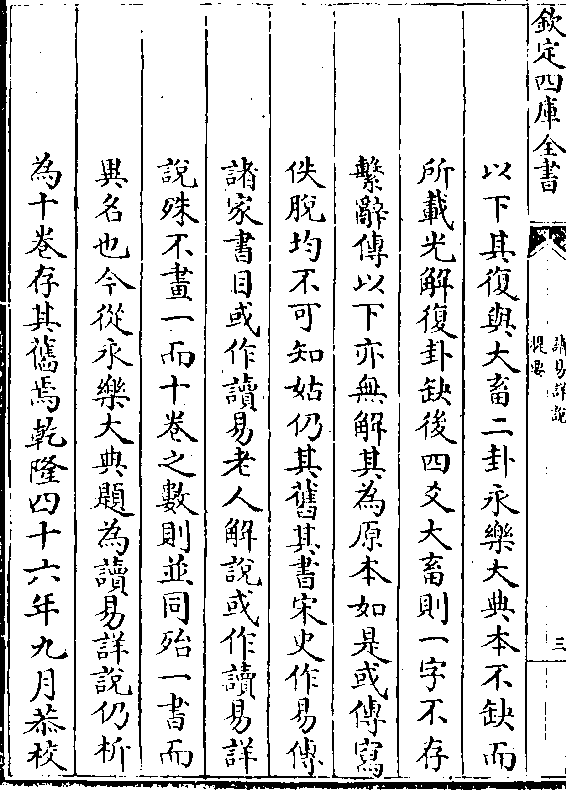 欽定四庫全書
讀易詳說
提要
三
以下其復與大畜二卦永樂大典本不缺而
所載光解復卦缺後四爻大畜則一字不存
繫辭傳以下亦無解其為原本如是或傳寫
佚脫均不可知姑仍其舊其書宋史作易傳
諸家書目或作讀易老人解說或作讀易詳
說殊不畫一而十卷之數則並同殆一書而
異名也今從永樂大典題為讀易詳說仍析
為十卷存其舊焉乾隆四十六年九月恭校